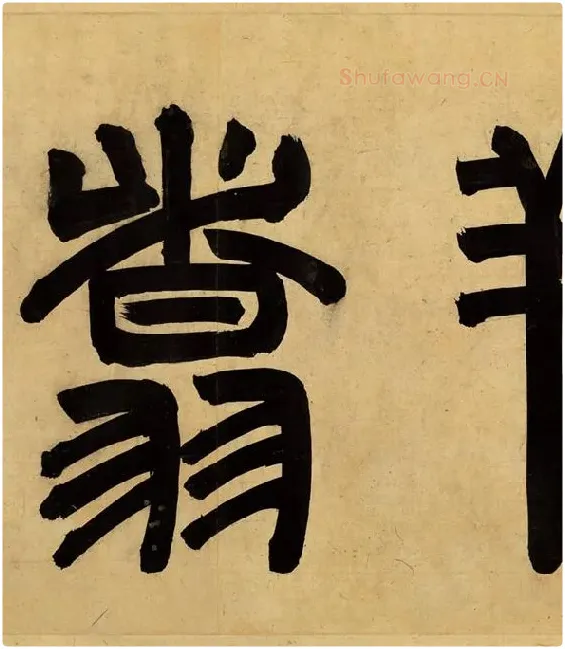 Shufawang.CN
翥